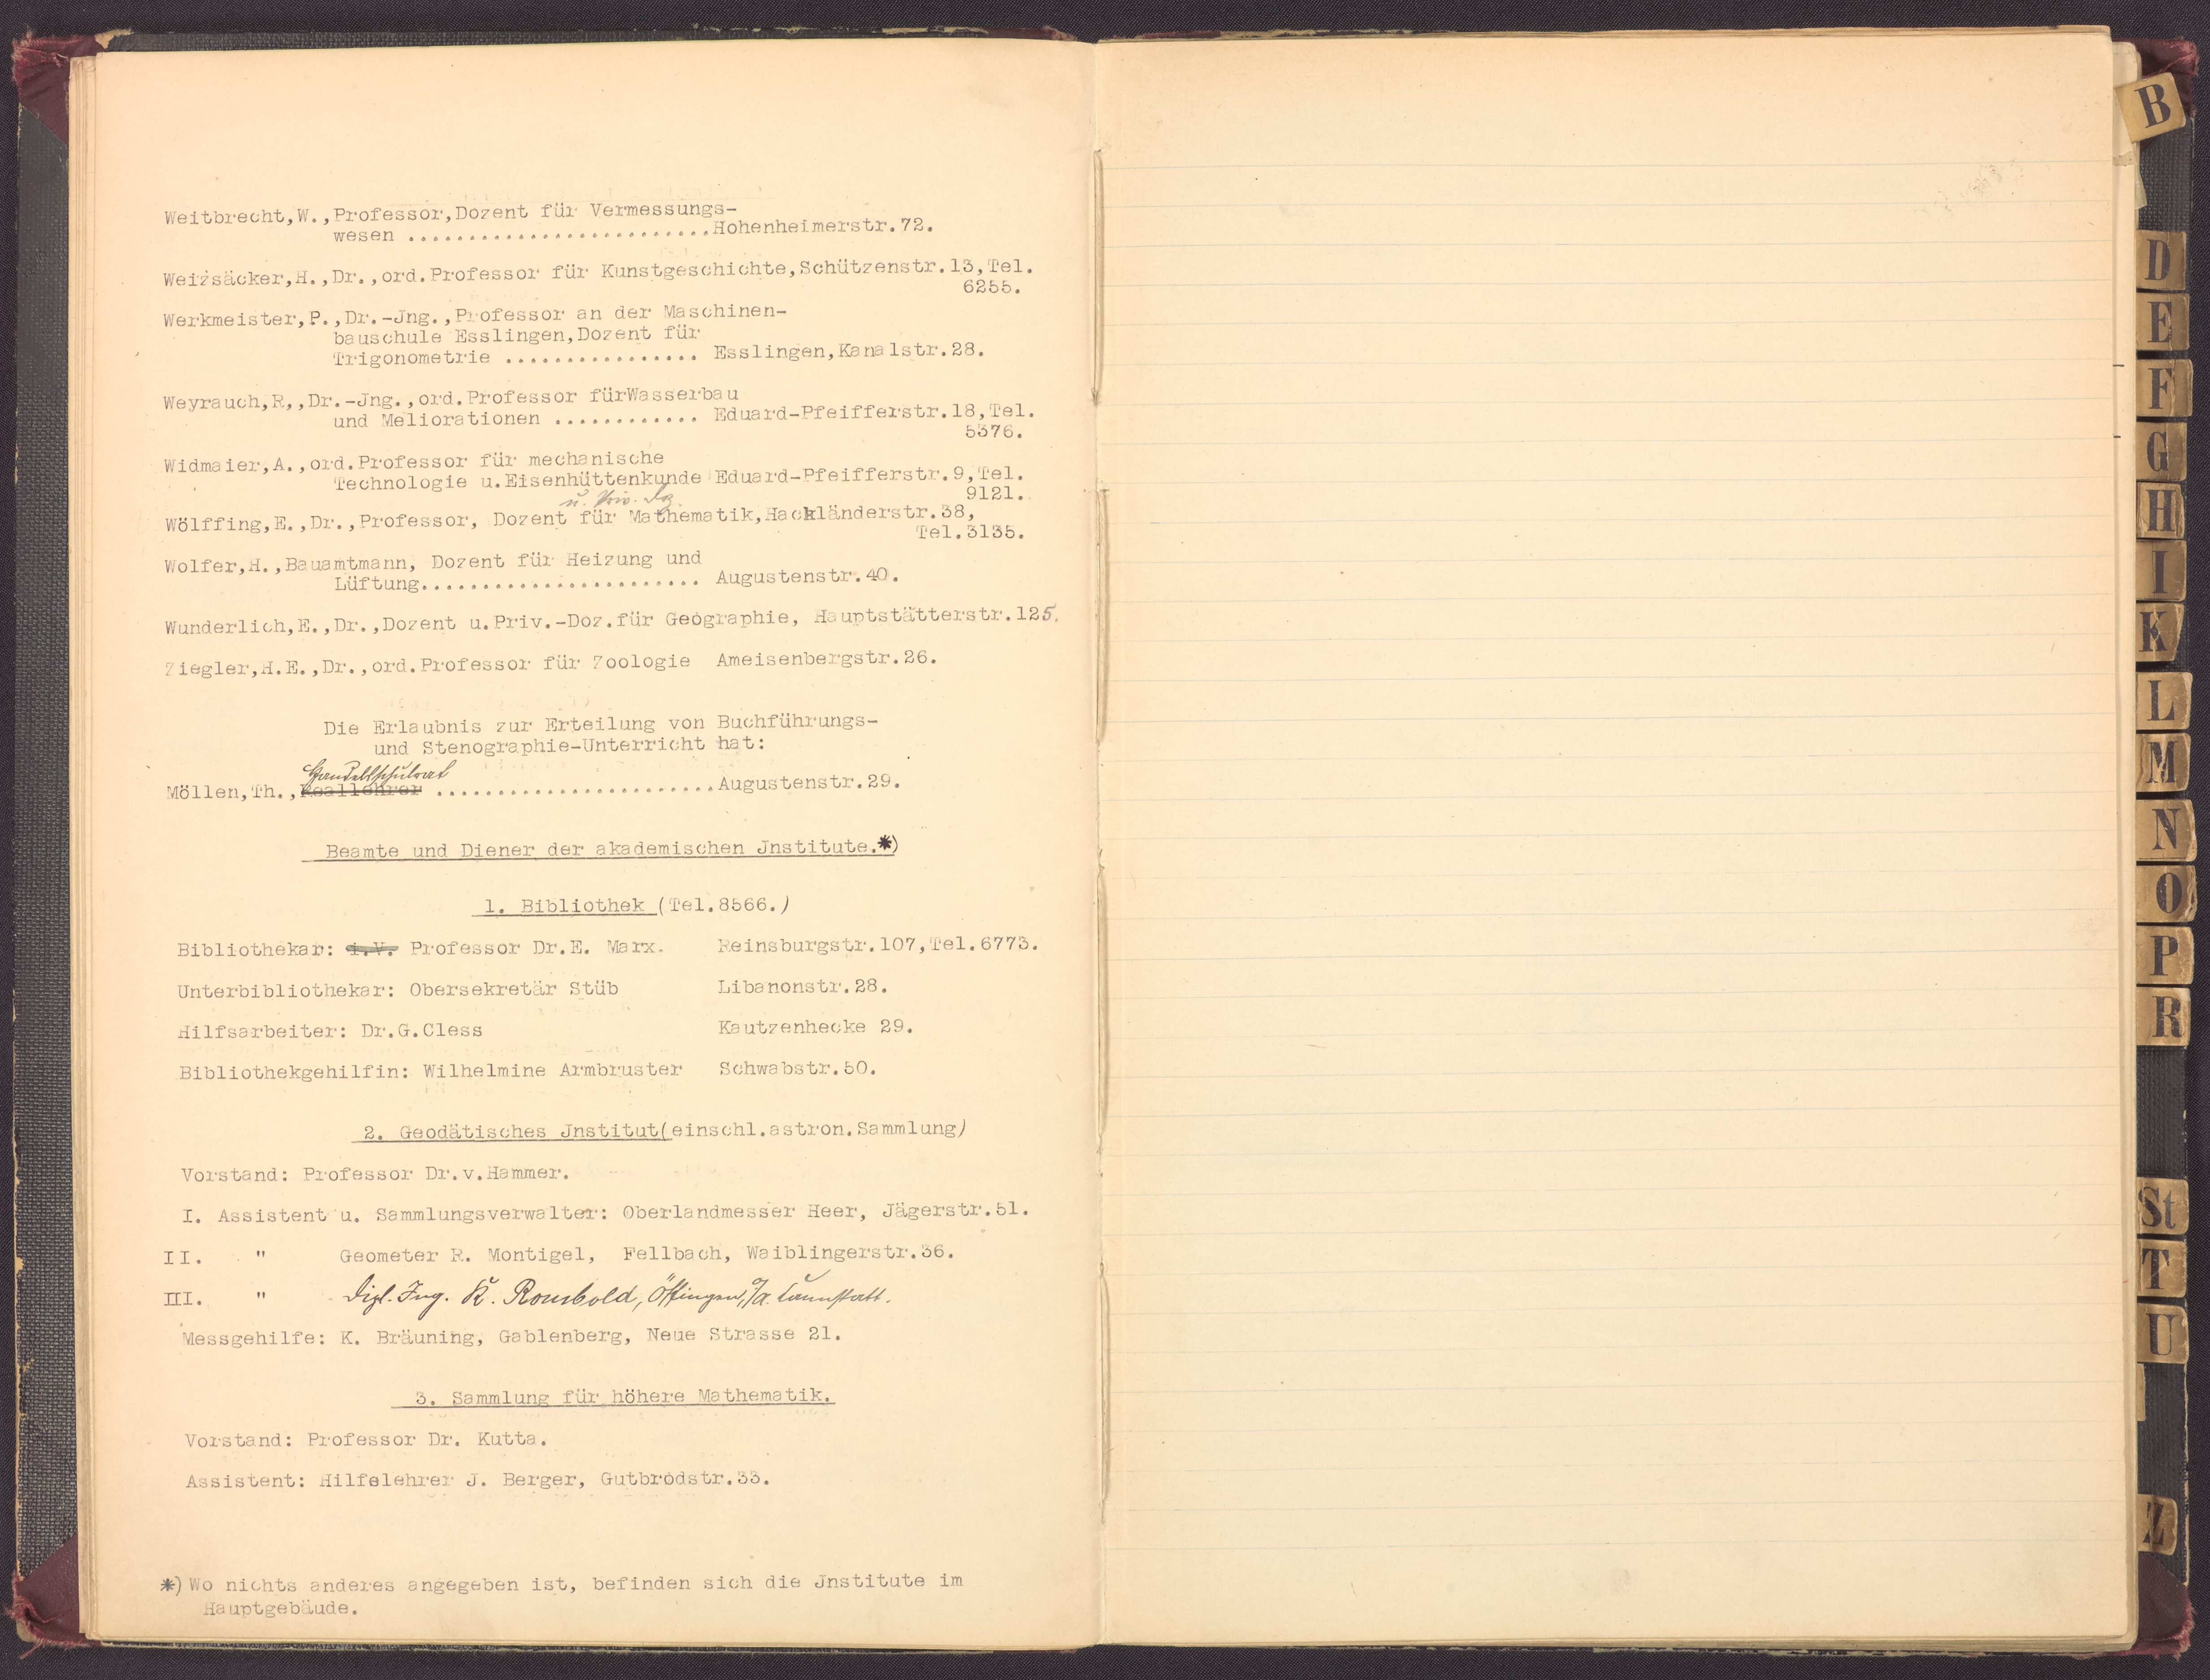 Weitbrecht,W.,Professor,Dozent für Vermessungs-
wesen .........................Hohenheimerstr.72.
Weizsäcker,H.,Dr.,ord.Professor für Kunstgeschichte,Schützenstr.13,Tel.
6255.
Werkmeister,P.,Dr.-Jng.,Professor an der Maschinen-
bauschule Esslingen,Dozent für
Trigonometrie ................ Esslingen,Kanalstr.28.
Weyrauch,R,,Dr.-Jng.,ord.Professor fürWasserbau
und Meliorationen ............ Eduard-Pfeifferstr.18,Tel.
5376.
Widmaier,A.,ord.Professor für mechanische
Technologie u.Eisenhüttenkunde Eduard-Pfeifferstr.9,Tel.
9121.
u. Priv. Dz.
Wölffing,E.,Dr.,Professor, Dozent für Mathematik,Hackländerstr.38,
Tel.3135.
Wolfer,H.,Bauamtmann, Dozent für Heizung und
Lüftung....................... Augustenstr.40.
Wunderlich,E.,Dr.,Dozent u.Priv.-Doz.für Geographie, Hauptstätterstr.125.
Ziegler,H.E.,Dr.,ord.Professor für Zoologie Ameisenbergstr.26.
Die Erlaubnis zur Erteilung von Buchführungs-
und Stenographie-Unterricht hat:
Handelsschulrat
Möllen,Th.,Reallehrer .......................Augustenstr.29.
Beamte und Diener der akademischen Jnstitute.*)
1. Bibliothek (Tel.8566.)
Bibliothekar: i.V. Professor Dr.E. Marx. Reinsburgstr.107,Tel.6773.
Unterbibliothekar: Obersekretär Stüb Libanonstr.28.
Hilfsarbeiter: Dr.G.Cless Kautzenhecke 29.
Bibliothekgehilfin: Wilhelmine Armbruster Schwabstr.50.
2. Geodätisches Jnstitut(einschl.astron.Sammlung)
Vorstand: Professor Dr.v.Hammer.
I. Assistent u. Sammlungsverwalter: Oberlandmesser Heer, Jägerstr.51.
II. " Geometer R. Montigel, Fellbach, Waiblingerstr.36.
III. " Dipl.-Ing. K. Rombold, Öffingen, O/A. Cannstatt.
Messgehilfe: K. Bräuning, Gablenberg, Neue Strasse 21.
3. Sammlung für höhere Mathematik.
Vorstand: Professor Dr. Kutta.
Assistent: Hilfslehrer J. Berger, Gutbrodstr.33.
*) Wo nichts anderes angegeben ist, befinden sich die Jnstitute im
Hauptgebäude.
B
D
E
F
G
H
I
K
L
M
N
O
P
R
St
T
U
Z